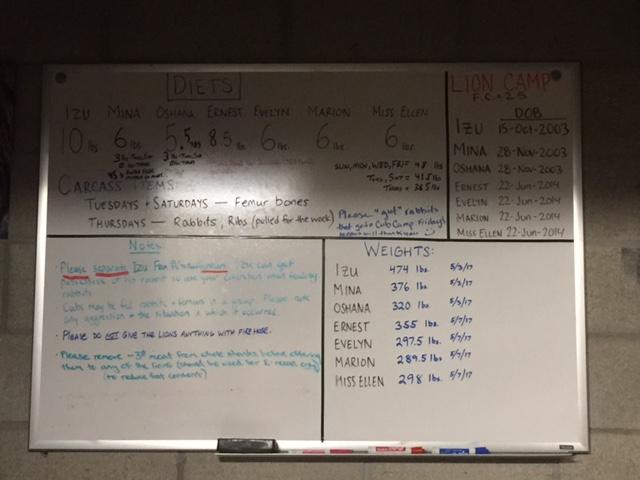 DIETS
IZU MINA OSHANA ERNEST EVELYN MARION MISS ELLEN
10 lbs 6 lbs 5.5 lbs 8.5 lbs 6 lbs 6 lbs 6 lbs
SUN, MON, WED, FRI = 48 lbs
CARCASS ITEMS
TUESDAYS + SATURDAYS — Femur bones
THURSDAYS — Rabbits, Ribs (pulled for the week)
Please "gut" rabbits
that go to Cub Camp. Fridays
LION CAMP
F.C. = 25
DOB
IZU 15-Oct-2003
MINA 28-Nov-2003
OSHANA 28-Nov-2003
ERNEST 22-Jun-2014
EVELYN 22-Jun-2014
MARION 22-Jun-2014
MISS ELLEN 22-Jun-2014
Notes
Please separate IZU
rabbits.
Cubs may be fed rabbits + femurs in a group. Please note
any aggression + the situation in which it occurred.
PLEASE DO NOT GIVE THE LIONS ANYTHING WITH FIREHOSE.
Please remove meat from whole shanks before offering
them to any of the lions
WEIGHTS:
IZU 474 lbs. 5/3/17
MINA 376 lbs. 5/3/17
OSHANA 320 lbs. 5/3/17
ERNEST 355 lbs. 5/7/17
EVELYN 297.5 lbs. 5/7/17
MARION 289.5 lbs 5/7/17
MISS ELLEN 298 lbs. 5/7/17